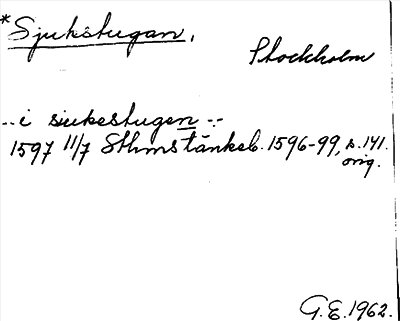 *Sjukstugan,
Stockholm
..i siukestugen ..
1597 11/7 Sthms tänkeb. 1596-99, s. 141.
orig.
G.E. 1962.